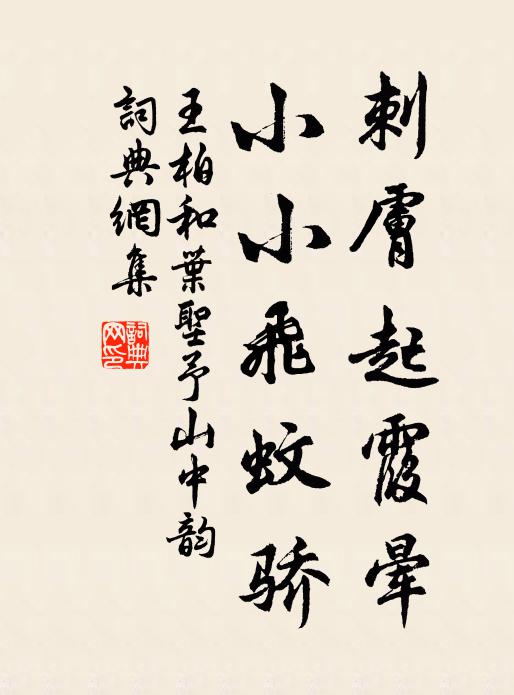 刺膚起霞暈
小小飛蚊骄
王柏和葉聖予山中韵
詞典網集
詞典網印